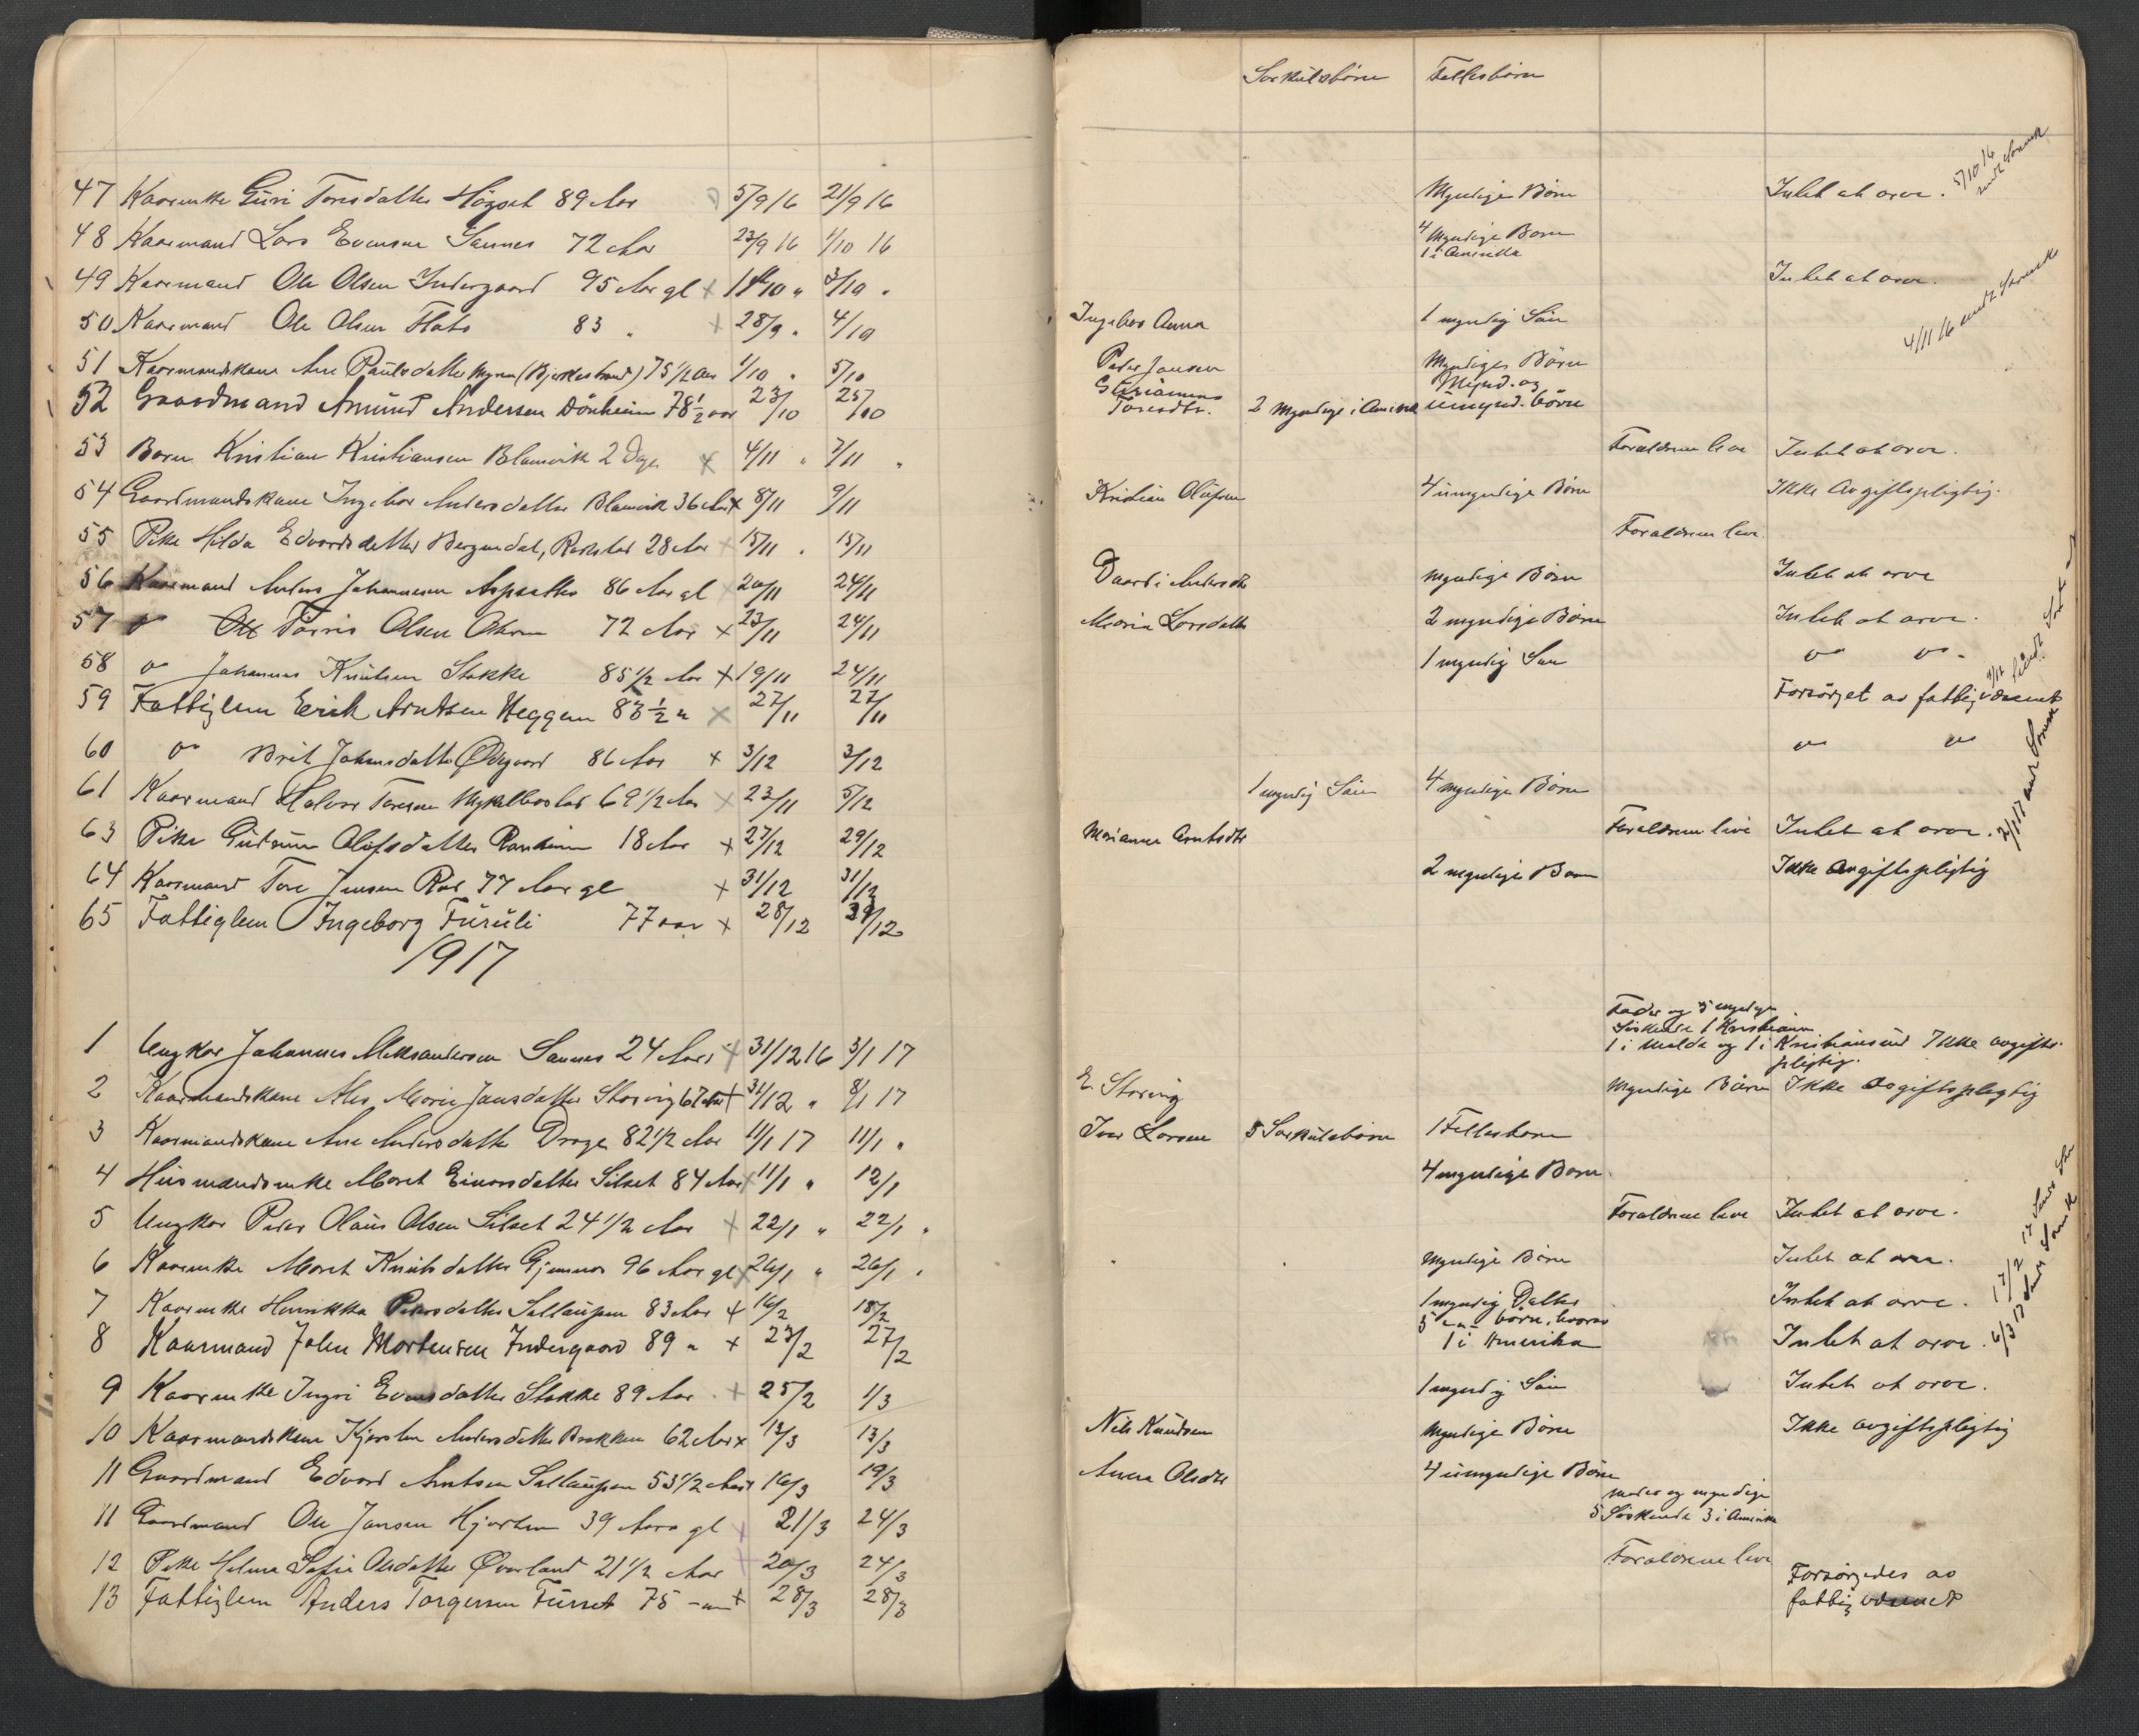 Særkulsbörn Fellesbörn
47 Kaarenke Guri Toresdatter Högset 89 Aar 5/9 16 21/9 16 Myndige Börn Intet at arve. 5/10 16
48 Kaarmand Lars Evensen Sannes 72 Aar 23/9 16 1/10 16 4 Myndige Born
1 i Amerika
49 Kaarmand Ole Olsen Indergaard 95 Aar gl x 1/10 " 3/10 " Intet at arve.
50 Kaarmand Ole Olsen Flato 83 " x 28/9 " 4/10 Ingebor Anna 1 myndig Sön 4/11 16
51 Kaarmandskone Ane Paulsdatter Myren (Bjerkestrand) 75 1/2 Aar 1/10 " 5/10 Peder Jansen Myndiges Börn
52 Gaardmand Amund Andersen Dönheim 78 1/2 aar 23/10 25/10 Toresdtr. 2 Myndige i Amerika Mynd. og umynd. börn
53 Barn Kristian Kristiansen Blamvik 2 Dage x 4/11 " 7/11 " Foraldrene leve Intet at arve.
54 Gaardmandskone Ingebor Andersdatter Blamvik 36 Aar x 8/11 9/11 Kristian Olufsen 4 umyndige Börn Ikke Avgiftspligtig.
55 Pike Hilda Edvardsdatter Bergmdal, 28 Aar x 15/11 . 15/11 Foraldrene leve.
56 Kaarmand Anders Johannesen Aspaas 86 Aar gl x 20/11 24/11 Andersdtr myndige Börn Intet at arve
57 do Tørris Olsen 72 Aar x 23/11 24/11 Maria Larsdatter 2 myndige Börn Intet at arve.
58 do Johannes Knutsen Stokke 85 1/2 Aar x 19/11 24/11 1 myndig Sön do do.
59 Fattiglem Erik Arntsen Heggem 83 1/2 " x 27/11 27/11 Forsörget av fattigvæsenet
60 do Brit Johansdatter Ødegaard 86 Aar x 3/12 3/12 do do
61 Kaarmand Halvor Toresen Mykelbostad 69 1/2 Aar x 23/11 5/12 1 myndig Sön 4 myndige Börn
63 Pike Gudrun Olufsdatter Ranheim 18 Aar x 27/12 29/12 Marianne Arntsdtr Foraldrene leve Intet at arve.
64 Kaarmand Tore Jensen Rod 77 Aar gl x 31/12 31/12 2 myndige Born Ikke Avgiftspligtig
65 Fattiglem Ingeborg Furuli 77 aar x 28/12 29/12
1917
Fader og 5 myndige
Söskende 1 Kristiania
1 Ungkar Johannes Aleksandersen Sannes 24 Aar x 31/12 16 3/1 17 1 i Molde og 1 i Kristiansund Ikke avgifts-
pligtig.
2 Kaarmandskone Marie Jansdatter Storvig 67 Aar x 31/12 " 8/1 17 E. Storvig Myndige Börn Ikke Avgiftspligtig
3 Kaarmandskone Ane Andersdatter Drage 82 1/2 Aar 11/1 17 11/1 " Iver Larsen 5 Særkulsbörn 1 Fellesbarn
4 Husmandsenke Maret Einarsdatter Silset 84 Aar x 11/1 " 12/1 4 myndige Born
5 Ungkar Peder Olaus Olsen Silset 24 1/2 Aar x 22/1 " 22/1 " Foraldrene leve Intet at arve.
6 Kaarenke Maret Knutsdatter Gjemnes 96 Aar gl x 26/1 " 26/1 " Myndige Börn Intet at arve.
7 Kaarenke Henrikka Pedersdatter Sollaupen 83 Aar x 16/2 18/2 1 myndig Datter Intet at arve.
8 Kaarmand John Mortensen Indergaard 89 " x 23/2 27/2 5 börn, hvorav
1 i Amerika Intet at arve.
9 Kaarenke Ingri Evensdatter Stokke 89 Aar . x 25/2 1/3 1 myndig Sön Intet at arve.
10 Kaarmandskone Kjersten Andersdatter Brakken 62 Aar x 13/3 13/3 Nels Knudsen Myndige Börn Ikke avgiftspligtig
11 Gaardmand Edvard Arntsen Sollaupen 53 1/2 Aar 16/3 19/3 Anna Olsdtr 4 umyndige Börn
moder og myndige
11 Gaardmand Ole Jansen Hjorten 39 Aar gl x 21/3 24/3 5 Söskende 3 i Amerika
12 Pike Helma Sofie Olsdatter Øverland 21 1/2 Aar 20/3 24/3 Foraldrene leve
13 Fattiglem Anders Torgersen Furset 75 x 28/3 28/3 Forsörgedes av
fattigvæsenet